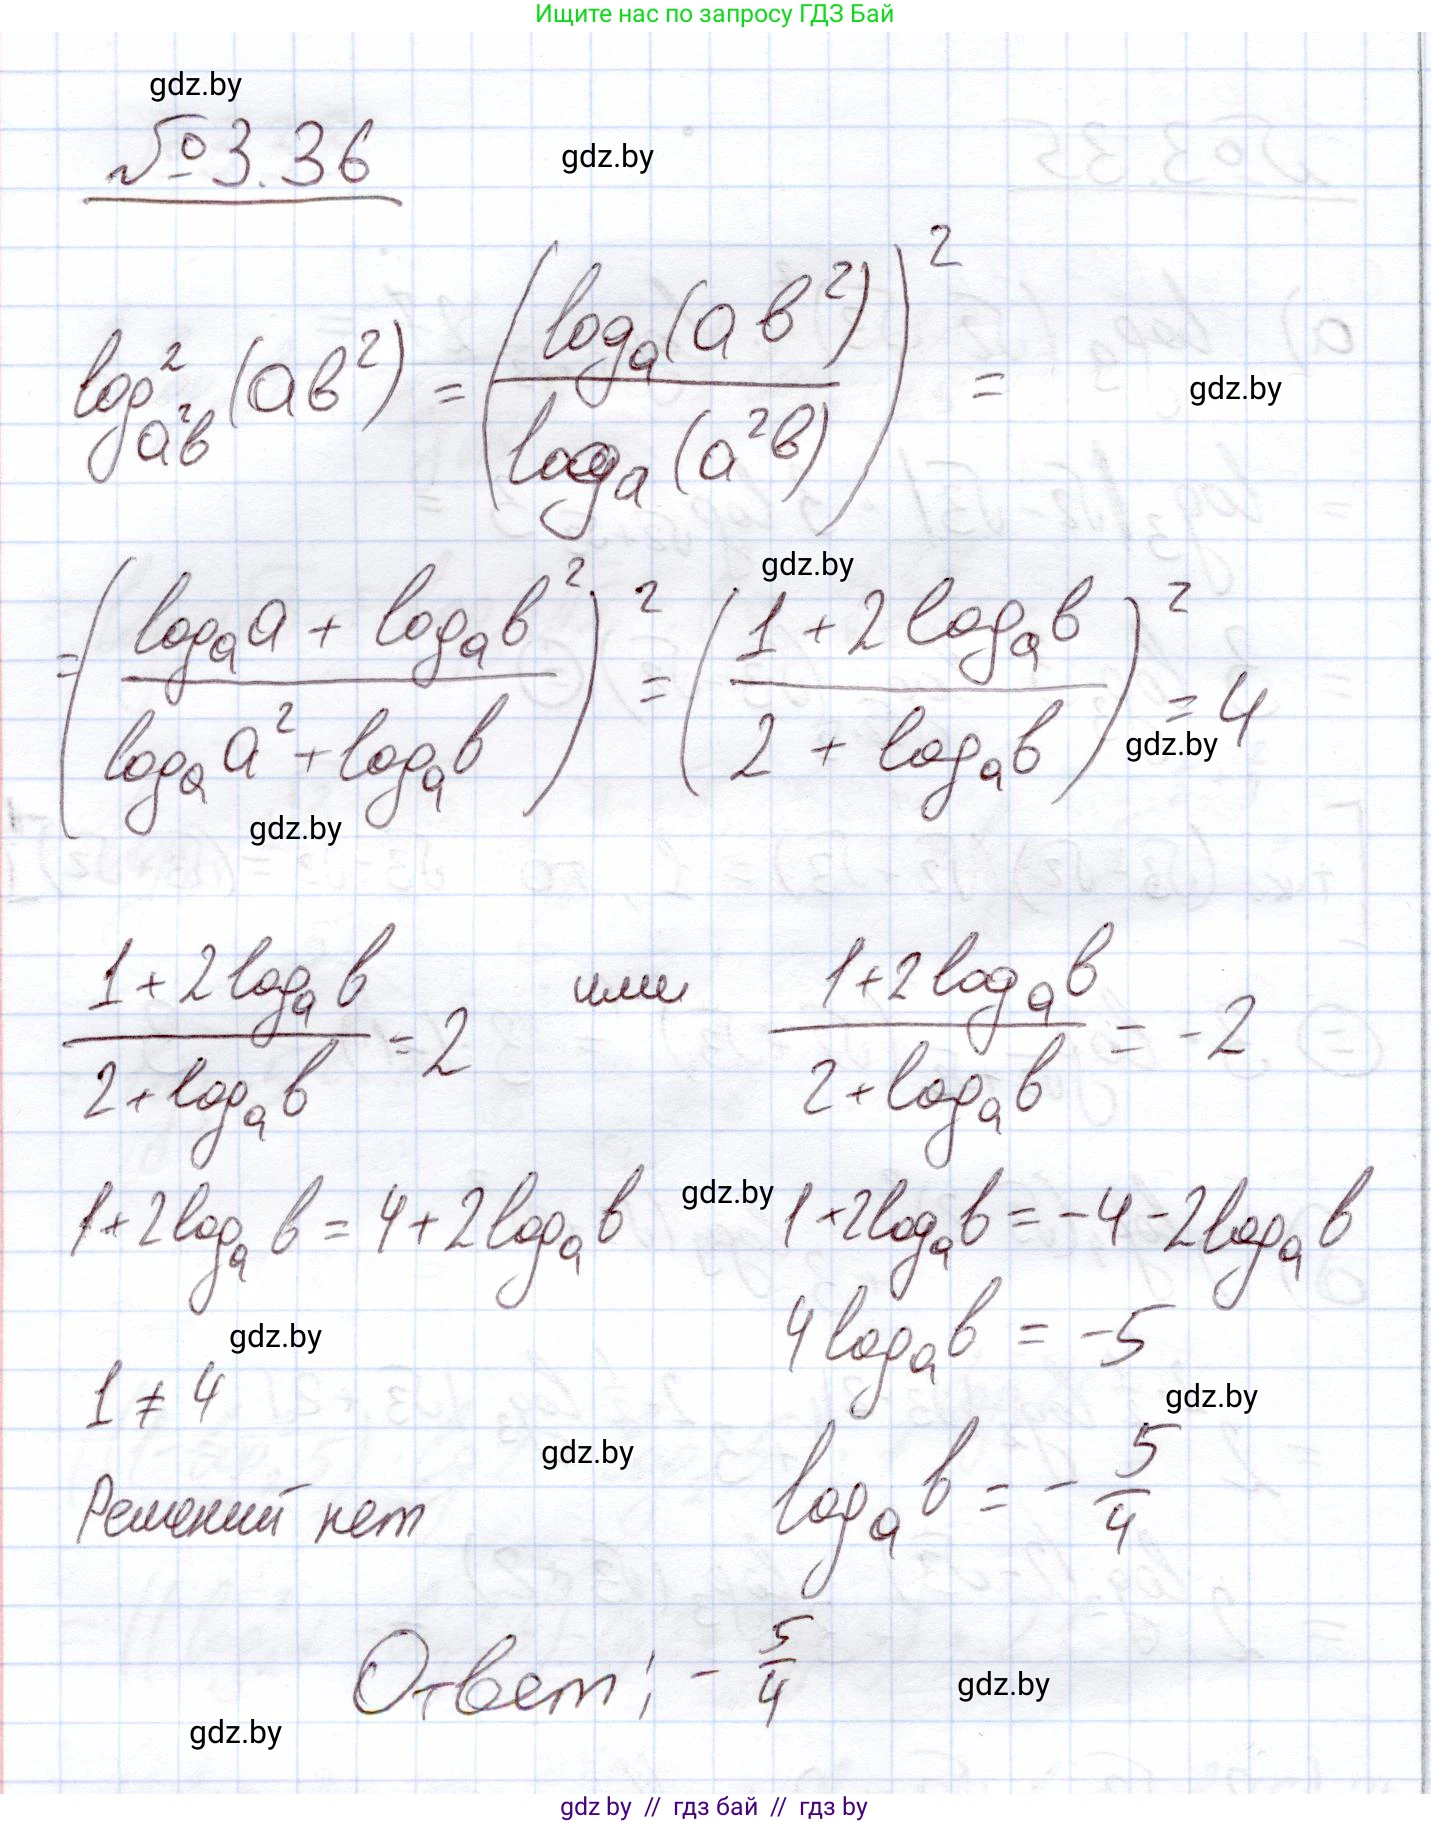 Ищите нас по запросу ГДЗ Бай
gdz.by
№ 3.36
gdz.by
log²_{a²b}(ab²) = (log_a(ab²) / log_a(a²b))² =
gdz.by
gdz.by
= ((log_a a + log_a b²) / (log_a a² + log_a b))² = ((1 + 2 log_a b) / (2 + log_a b))² = 4
gdz.by
gdz.by
(1 + 2 log_a b) / (2 + log_a b) = 2 или (1 + 2 log_a b) / (2 + log_a b) = -2
1 + 2 log_a b = 4 + 2 log_a b gdz.by 1 + 2 log_a b = -4 - 2 log_a b
gdz.by 4 log_a b = -5
1 ≠ 4 gdz.by
gdz.by
Решений нет log_a b = - 5/4
Ответ: - 5/4 gdz.by
gdz.by
gdz by // гдз бай // гдз by